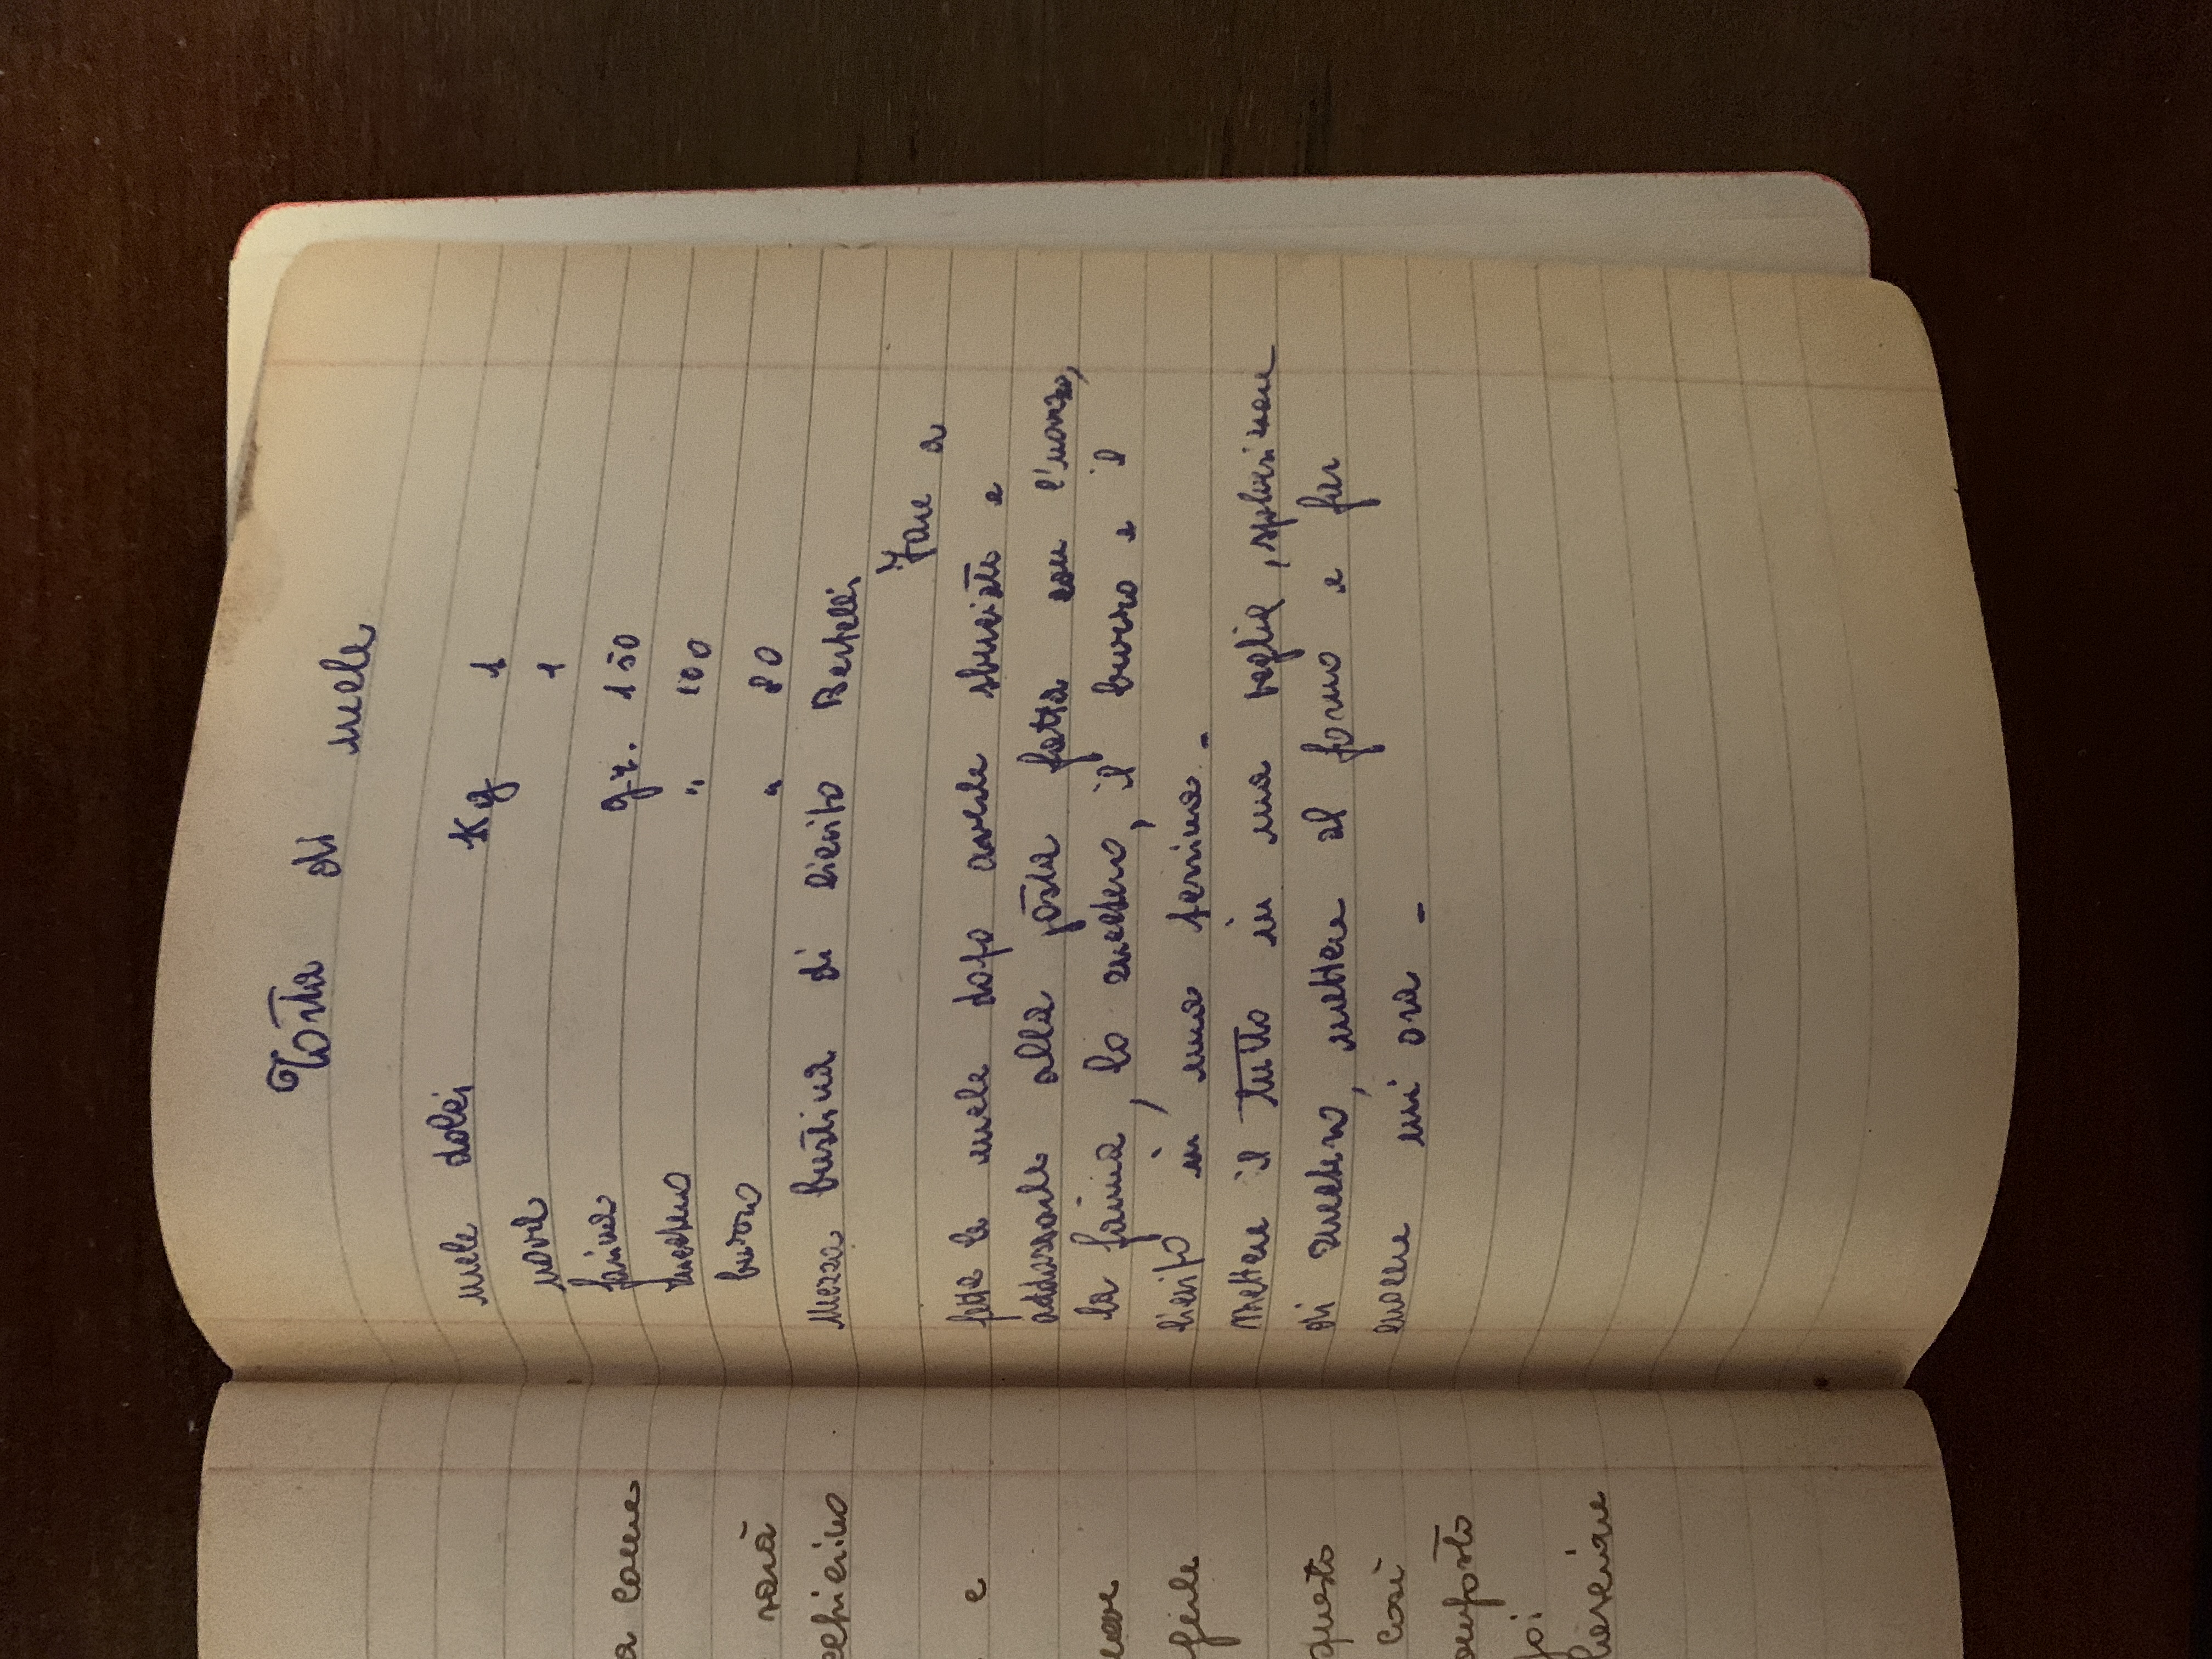 a come
sarà
cchierino
e
gerle
questo
così
composto
poi
Torta di mele
mele dolci Kg 1
uova 1
farina gr. 150
zucchero " 100
burro " 80
Mezza bustina di lievito Bertelli
Fare a
fette le mele dopo averle sbucciate e
addossarle alla pasta fatta con l'uovo,
la farina, lo zucchero, il burro e il
lievito in una terrina -
Mettere il tutto in una teglia, spolverizzare
di zucchero, mettere al forno e far
cuocere un' ora -